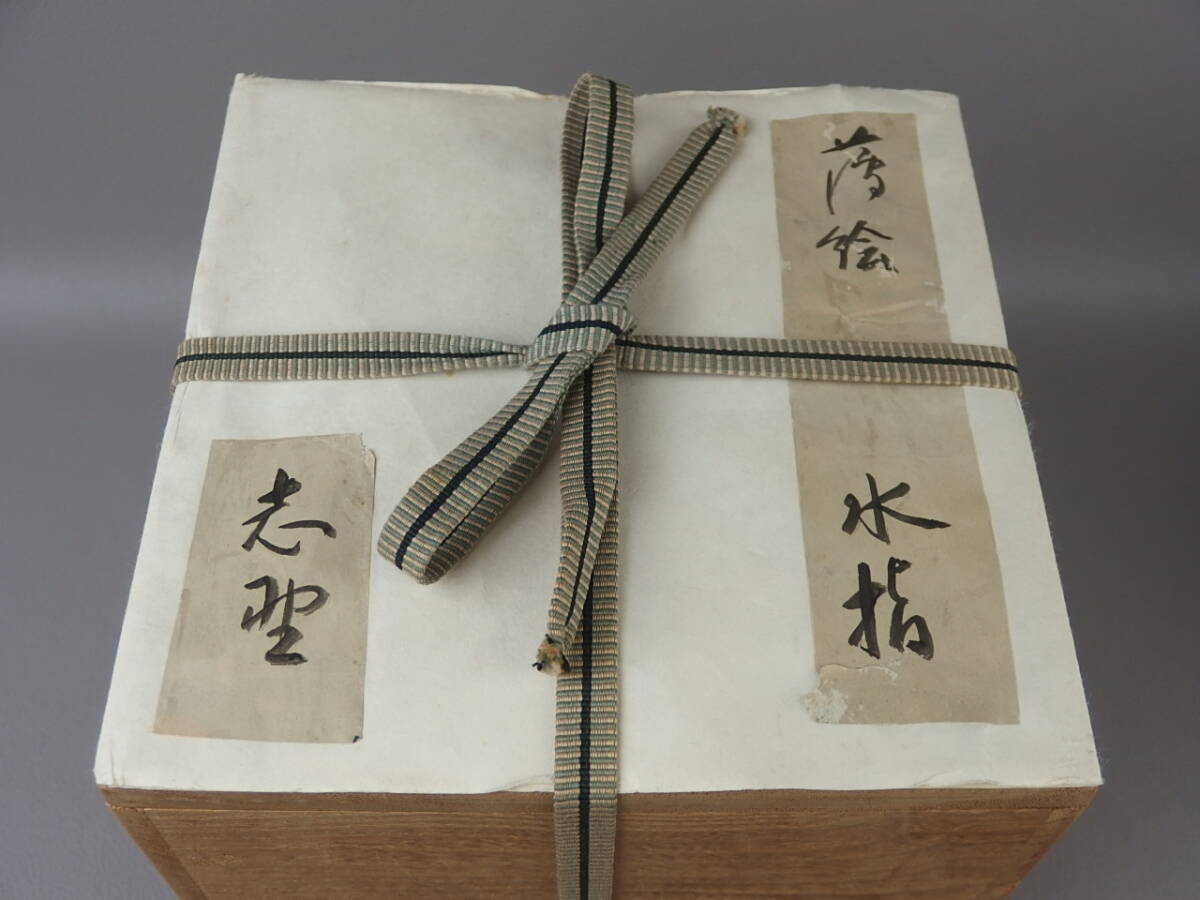 薄絵
水指
志野